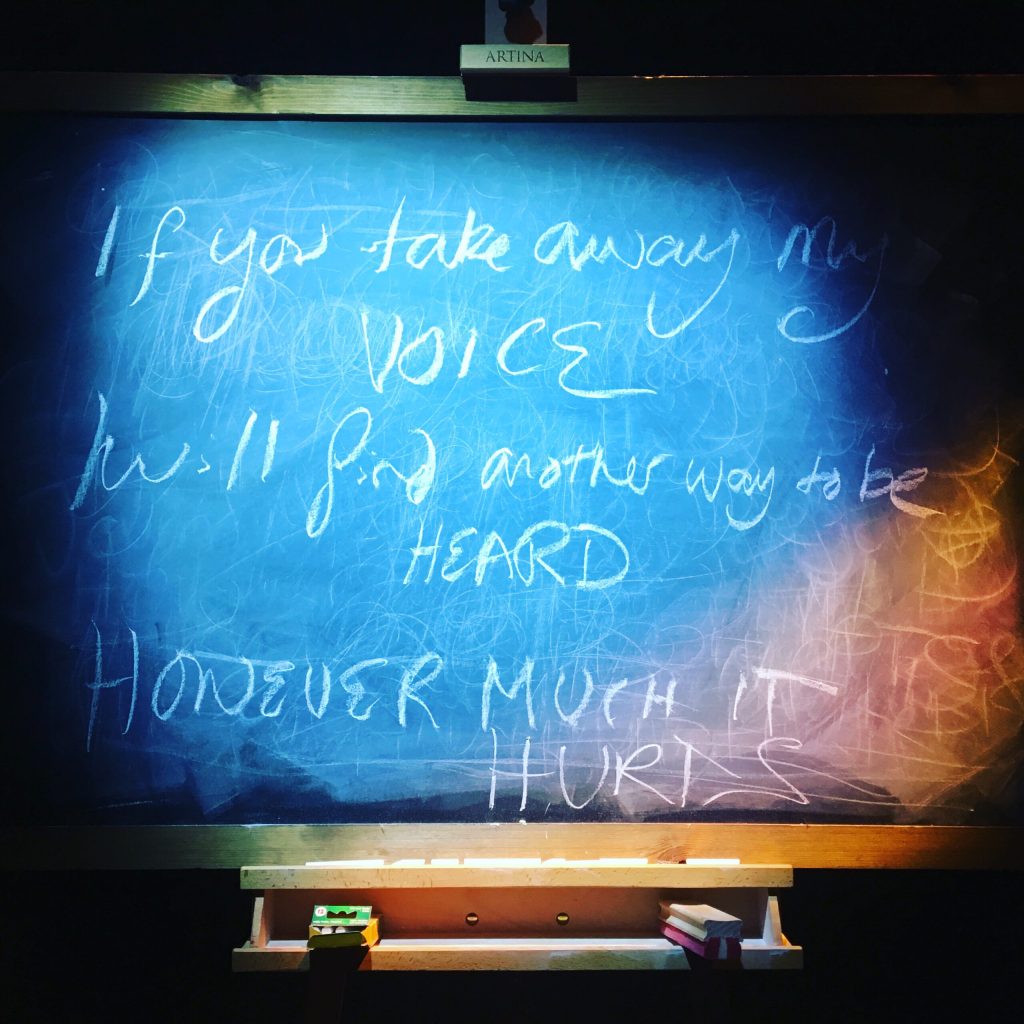 ARTINA
If you take away my
VOICE
I will find another way to be
HEARD
HOWEVER MUCH IT
HURTS